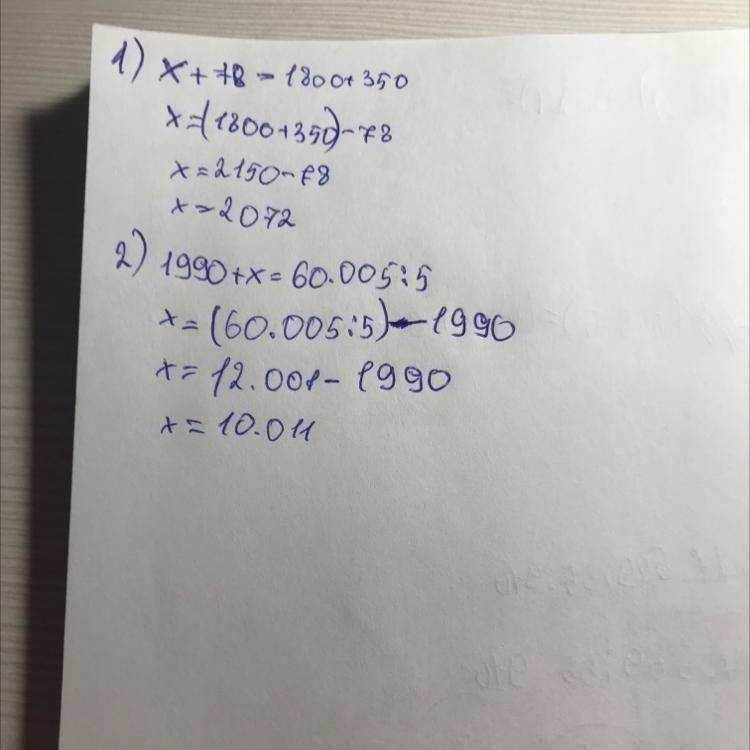 1) x + 78 = 1800 + 350
x = (1800 + 350) - 78
x = 2150 - 78
x = 2072
2) 1990 + x = 60.005 : 5
x = (60.005 : 5) - 1990
x = 12.001 - 1990
x = 10.011